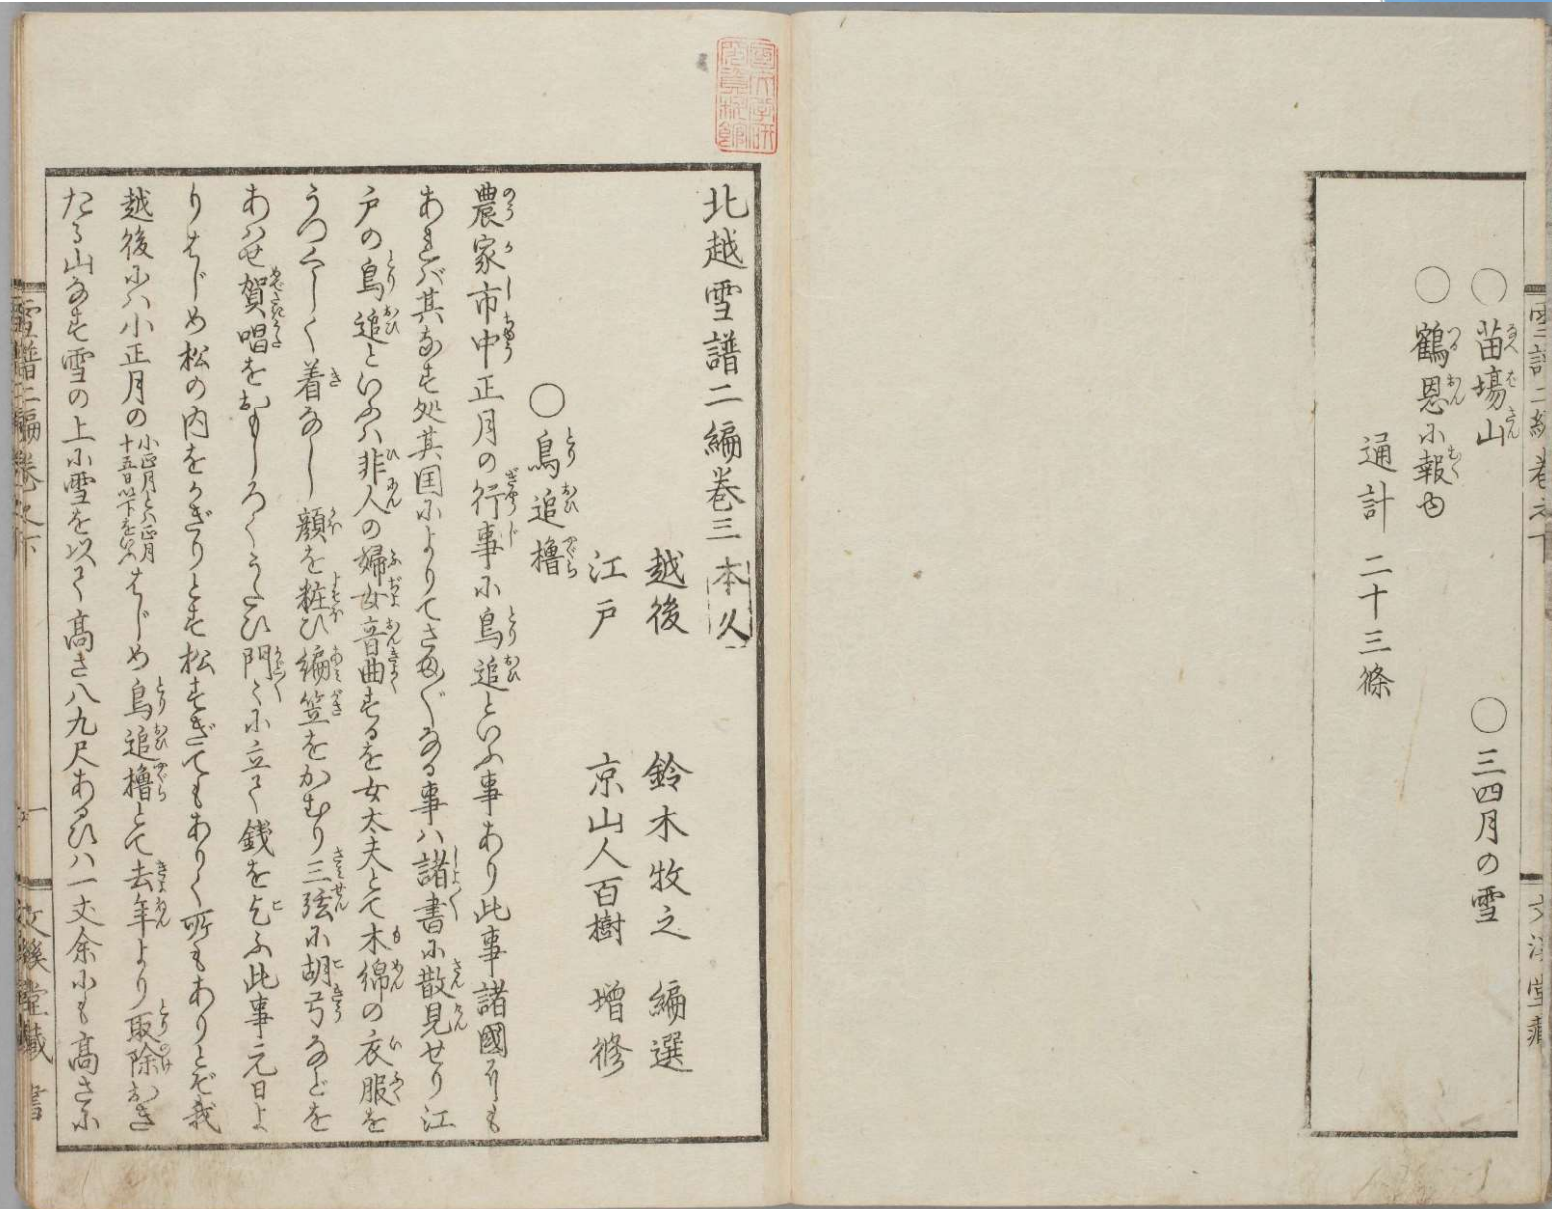 ○苗場山　○三四月の雪
○鶴恩に報ゆ
通計二十三條
雪譜二編巻之下
文渓堂蔵
北越雪譜二編巻三
越後　鈴木牧之　編選
江戸　京山人百樹　増修
○鳥追櫓
農家市中正月の行事に鳥追といふ事あり此事諸國にも
あれば其なす処其国によりてさま〴〵なる事ハ諸書に散見せり江
戸の鳥追といふハ非人の婦女音曲するを女太夫とて木綿の衣服を
うつくしく着なし顔を粧ひ編笠をかむり三弦に胡弓などを
あハせ賀唱をおもしろくうたひ門〻に立て銭を乞ふ此事元日よ
りはじめ松の内をかぎりとす松すぎてもありく所もありとぞ我
越後にハ小正月の小正月とハ正月十五日以下をいふはじめ鳥追櫓とて去年より取除おき
たる山なす雪の上に雪を以て高さ八九尺あるひハ一丈余にも高さに
雪譜二編巻之下
一
文渓堂蔵書